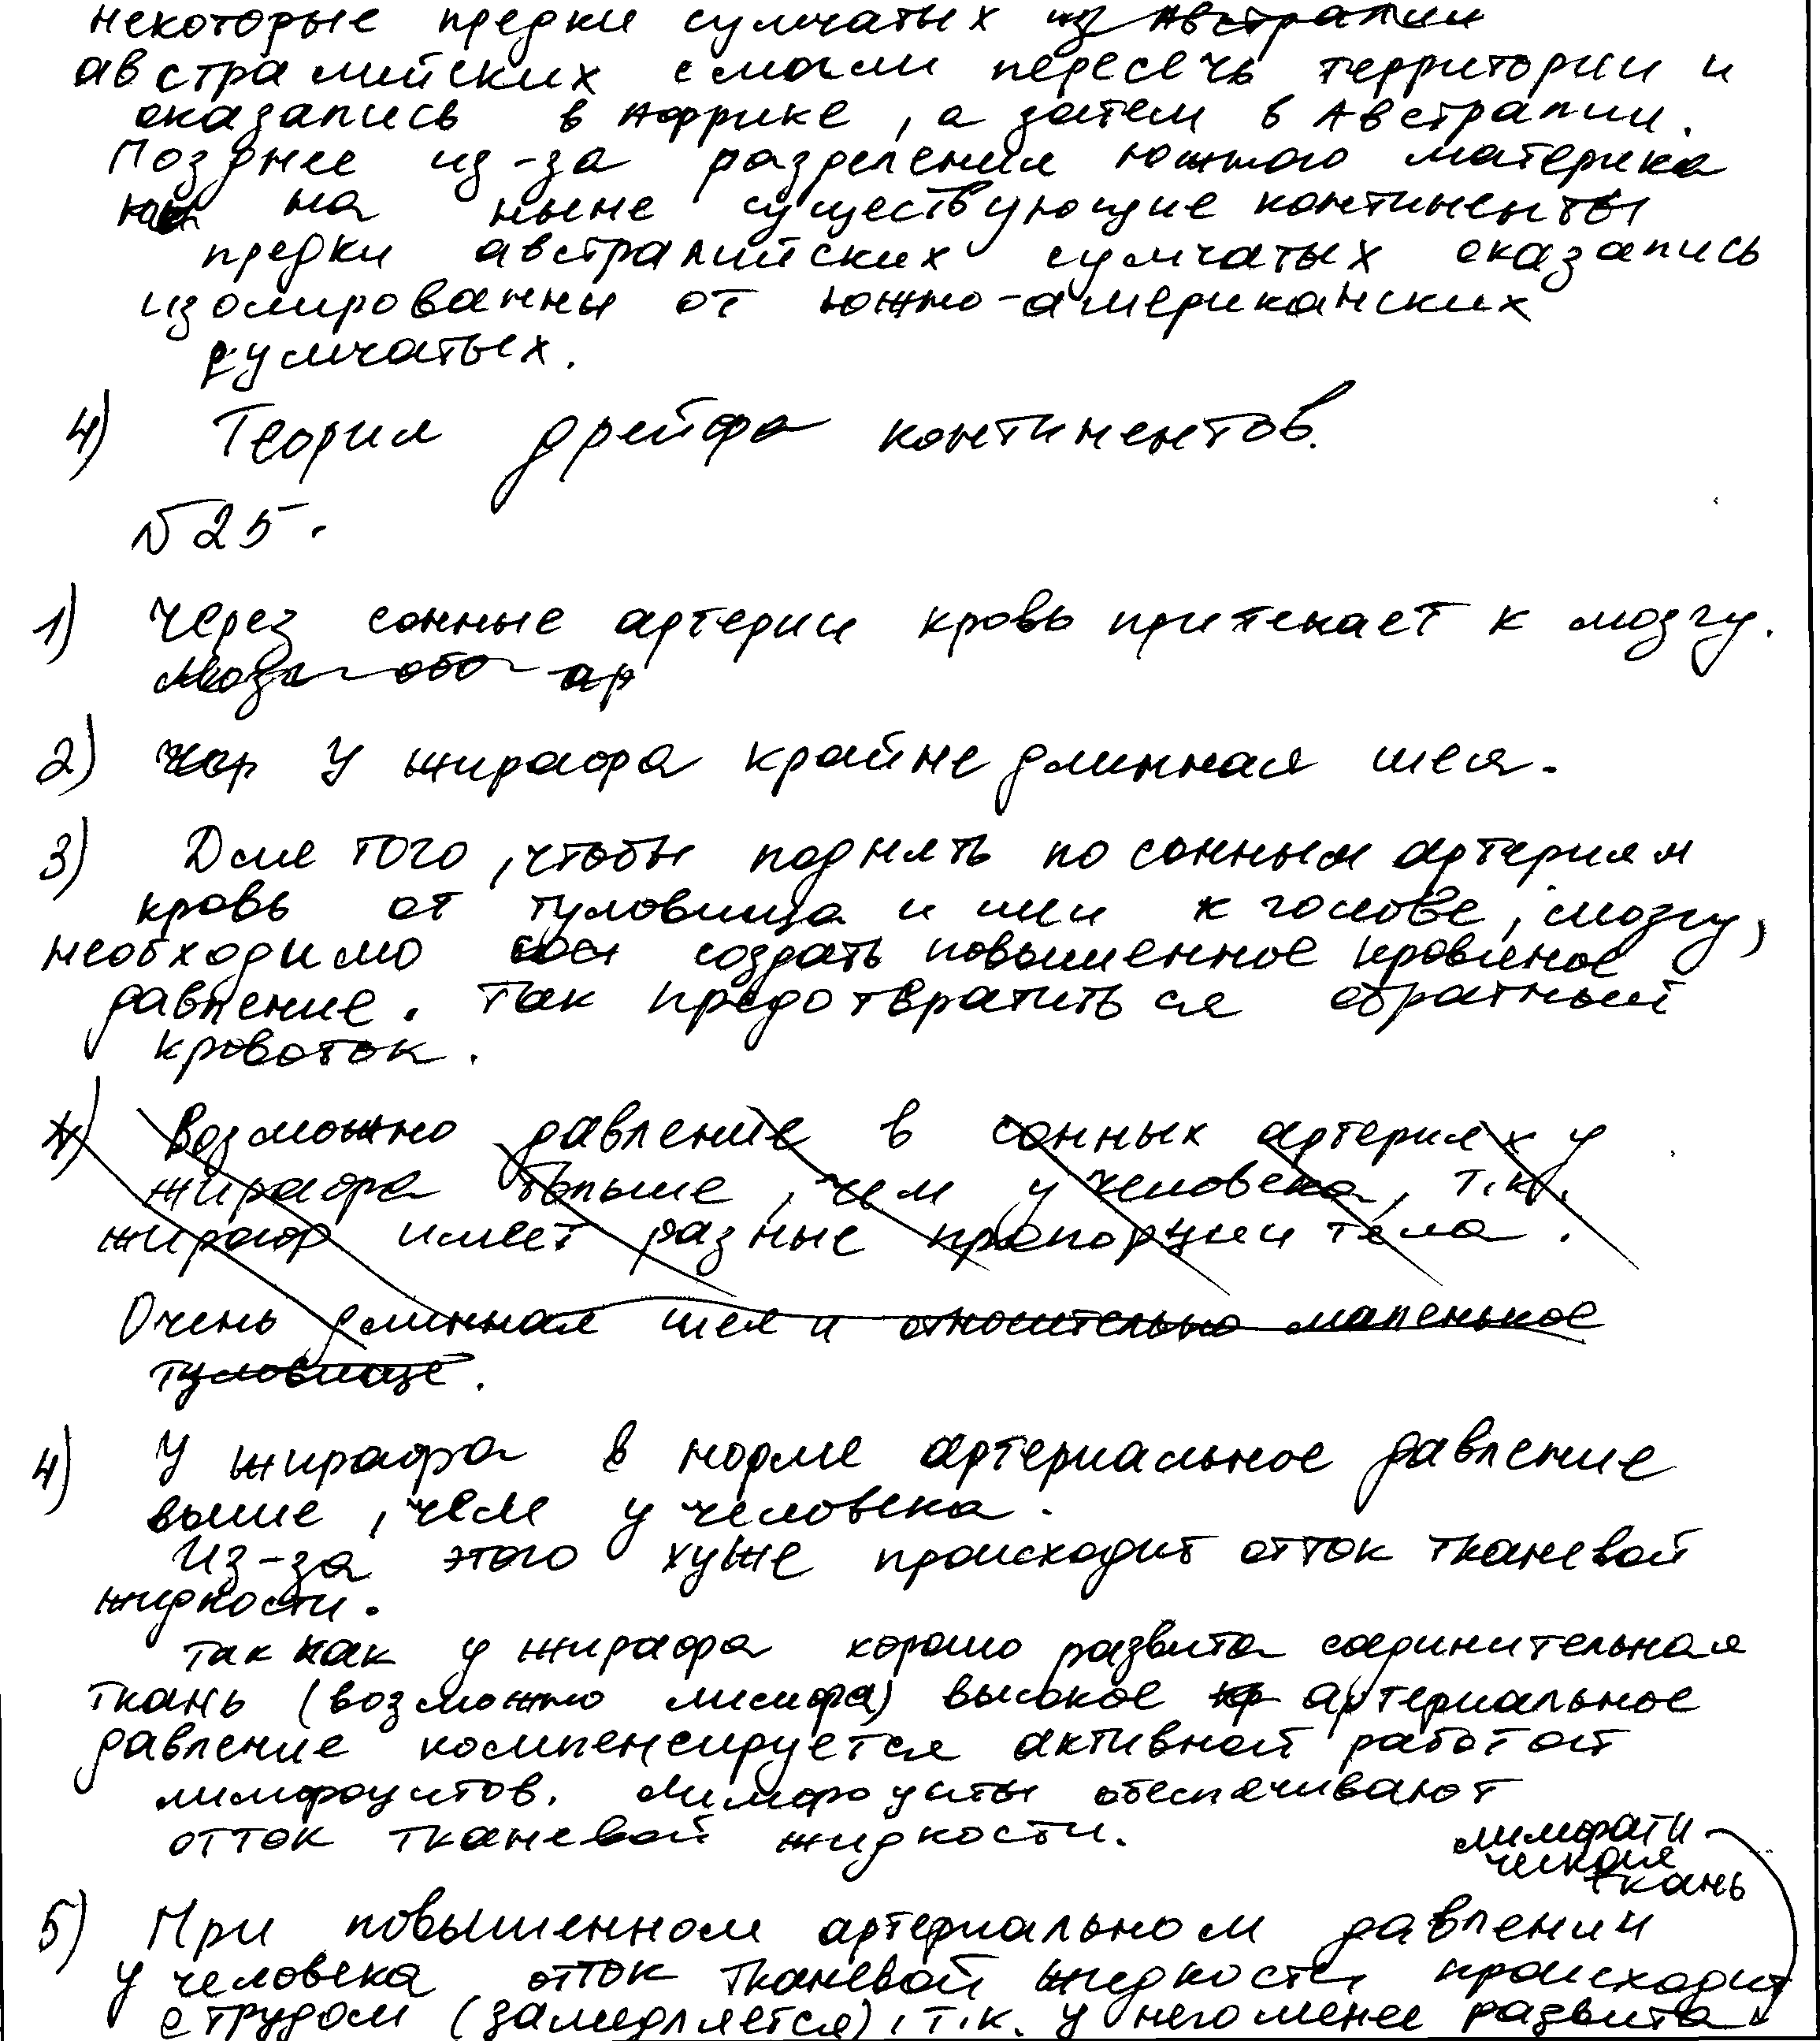 некоторые предки сумчатых из Австралии
австралийских смогли пересечь территории и
оказались в Африке, а затем в Австралии.
Позднее из-за разделения южного материка
на ныне существующие континенты
предки австралийских сумчатых оказались
изолированны от южно-американских
сумчатых.
4) Теория дрейфа континентов.
№25.
1) Через сонные артерии кровь притекает к мозгу.
ар
2) У жирафа крайне длинная шея.
3) Для того, чтобы поднять по сонным артериям
кровь от туловища и шеи к голове, мозгу,
необходимо создать повышенное кровяное
давление. Так предотвратиться обратный
кровоток.
4) Возможно давление в сонных артериях у
жирафа больше, чем у человека, т.к.
жираф имеет разные пропорции тела.
Очень длинная шея и относительно маленькое
туловище.
4) У жирафа в норме артериальное давление
выше, чем у человека.
Из-за этого хуже происходит отток тканевой
жидкости.
Так как у жирафа хорошо развита соединительная
ткань (возможно лимфа) высокое кр артериальное
давление компенсируется активной работой
лимфоцитов. Лимфоциты обеспечивают
отток тканевой жидкости.
лимфати-
ческая
ткань
5) При повышенном артериальном давлении
у человека отток тканевой жидкости происходит
с трудом (замедляется), т.к. у него менее развита